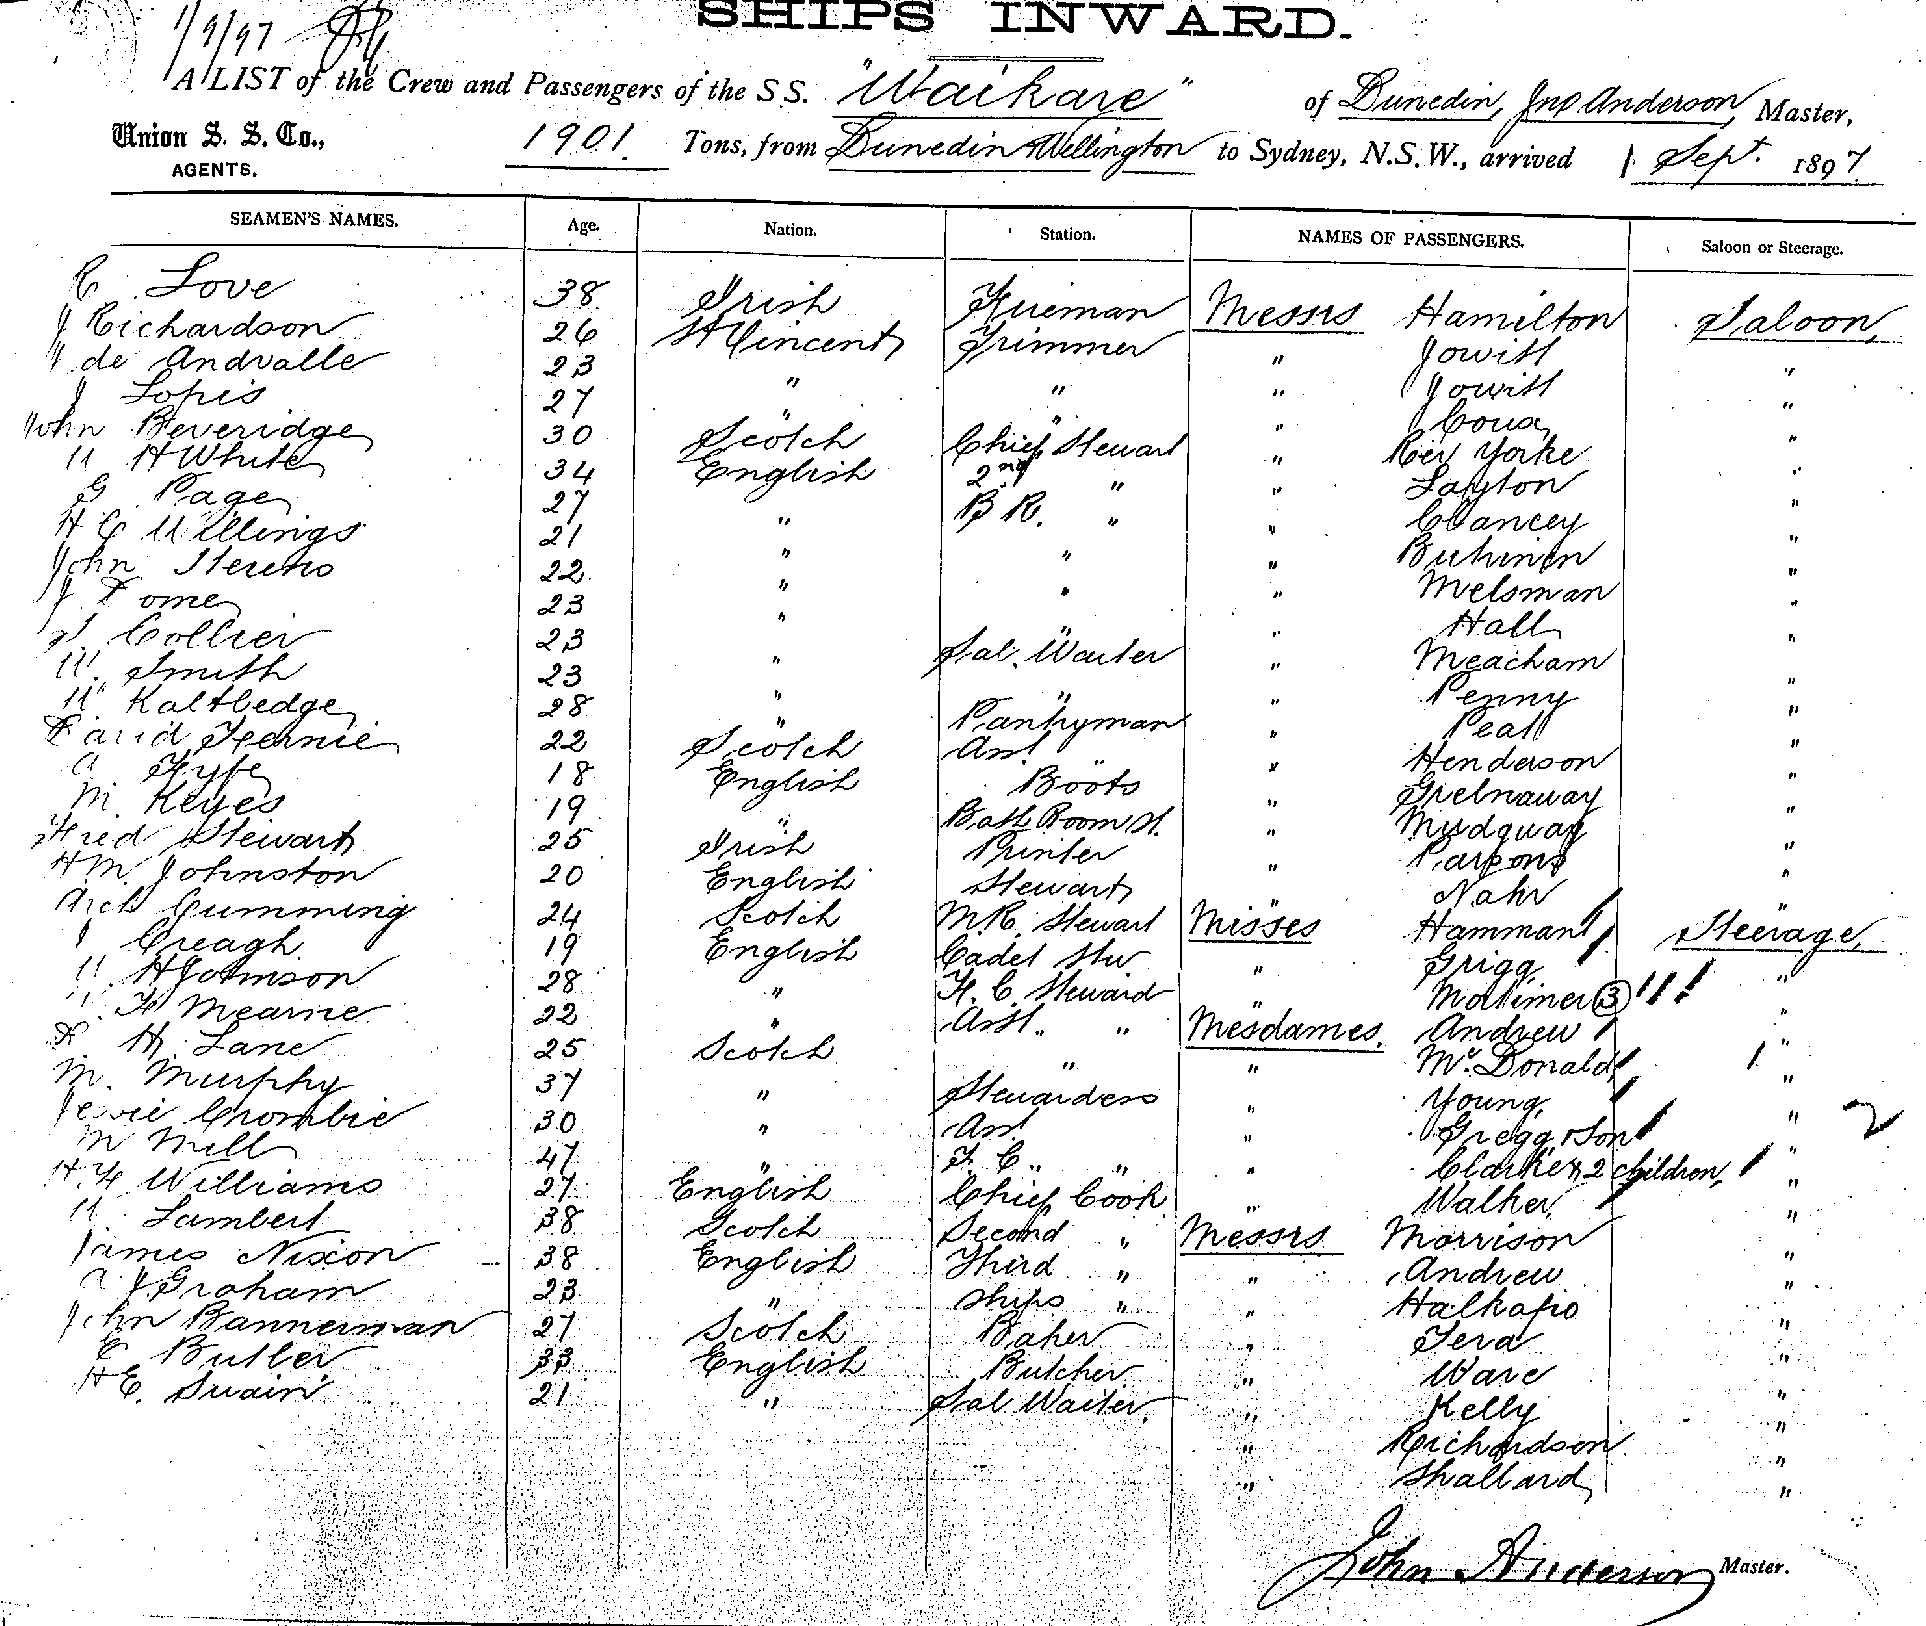 SHIPS INWARD.
1/9/97
A LIST of the Crew and Passengers of the S.S. "Waikare" of Dunedin, Jno Anderson, Master,
Union S. S. Co., AGENTS. 1901. Tons, from Dunedin Wellington to Sydney, N.S.W., arrived 1 Sept. 1897
SEAMEN'S NAMES. Age. Nation. Station. NAMES OF PASSENGERS. Saloon or Steerage.
C Love 38 Irish Fireman Messrs Hamilton Saloon,
J Richardson 26 St Vincent Trimmer " Jowitt "
" de Andvalle 23 " " " Jowitt "
J Lopis 27 " " "
John Beveridge 30 Scotch Chief Stewart " Rev Yorke "
W H White 34 English 2nd " " Layton "
G Page 27 " B R. " " Clancey "
H C Willings 21 " " "
John Sterens 22 " " " Melsman "
J Dome 23 " " " Hall "
Collier 23 " Sal. Waiter " Meacham "
W. Smith 23 " " " Penny "
W Kaltbedge 28 " Pantryman " Peat "
David Fernie 22 Scotch Asst " " Henderson "
A Fyfe 18 English Boots " Greenaway "
M. Keyes 19 " Bath Room St. " Mudguay "
Fred Stewart 25 Irish Printer " Parsons "
H M. Johnston 20 English Stewart " Nahr "
Arch Cumming 24 Scotch M R. Stewart Misses Hammant Steerage,
Creagh 19 English Cadet Stw. " Grigg "
W. H Johnson 28 " F. C. Steward " Mortimer 3 "
W. F Mearne 22 " Asst. " Mesdames. Andrew "
D H. Lane 25 Scotch " " McDonald "
M. Murphy 37 " Stewardess " Young "
Jessie Crombie 30 " Asst " Gregg & Son " 2
M Mill 47 " F. C. " " Clarke & 2 children, "
H. Williams 27 English Chief Cook " Walker "
W. Lambert 38 Scotch Second " Messrs Morrison "
James Nixon 38 English Third " " Andrew "
A J Graham 23 " Ships " " Halkapio "
John Bannerman 27 Scotch Baker " Tera "
C Butler 33 English Butcher " Ware "
H E. Swain 21 " Sal Waiter " Kelly "
" Richardson "
" Shallard "
John Anderson Master.